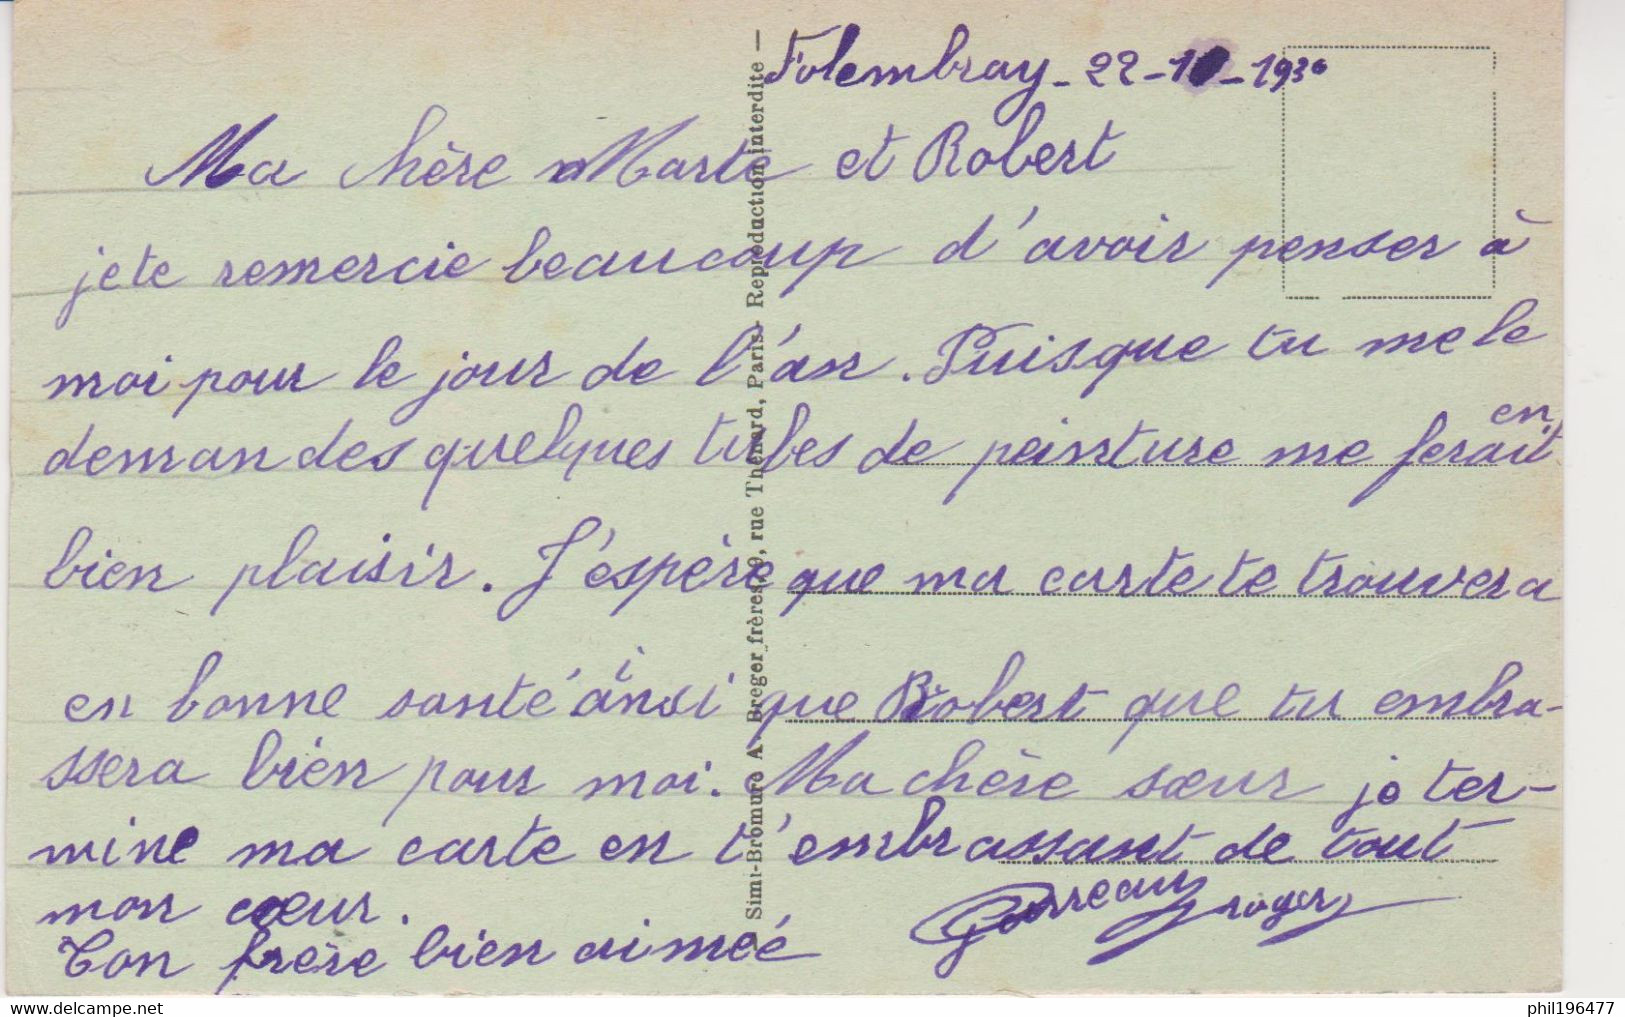 Folembray - 22 - 1 - 1930
Ma chère Marte et Robert
je te remercie beaucoup d'avoir penser à
moi pour le jour de l'an. Puisque tu me le
demandes quelques tubes de peinture me ferait en
bien plaisir. J'espère que ma carte te trouvera
en bonne santé ainsi que Robert que tu embra-
ssera bien pour moi. Ma chère sœur je ter-
mine ma carte en t'embrassant de tout
mon cœur.
Ton frère bien aimeé
roger
Simi-Bromure A. Breger frères, 9, rue Thénard, Paris - Reproduction interdite —
delcampe.net
phil196477